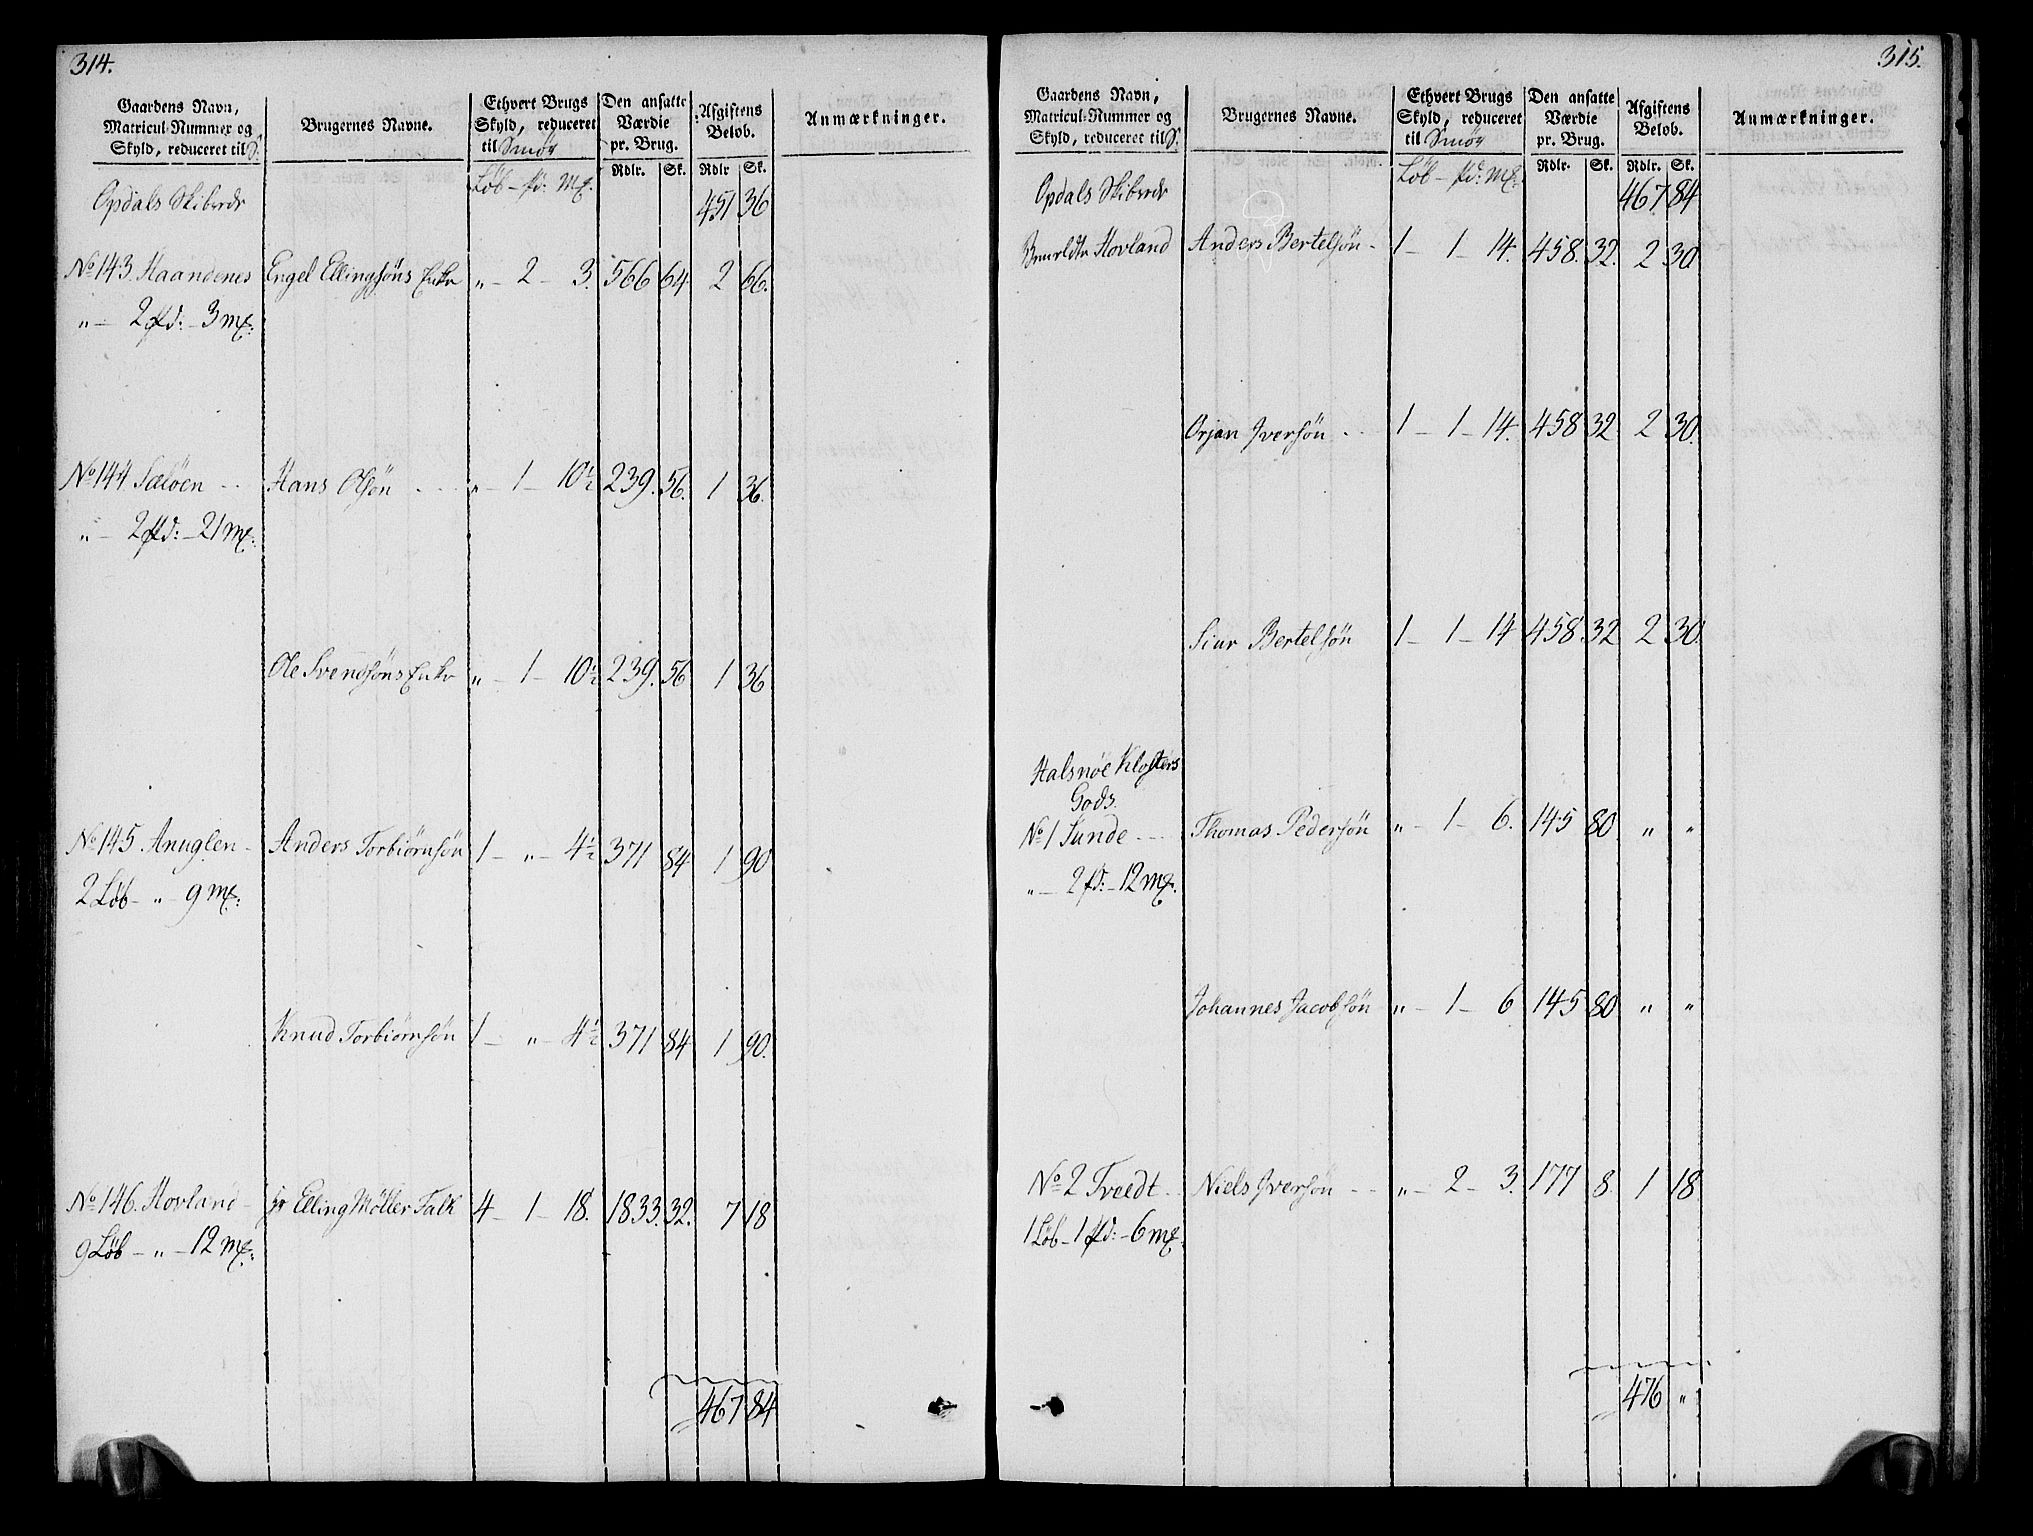 314.
Gaardens Navn, Matricul-Nummer og Skyld, reduceret til S. | Brugernes Navne. | Ethvert Brugs Skyld, reduceret til Smör | Den ansatte Værdie pr. Brug. | Afgiftens Beløb. | Anmærkninger.
Löb - Pd: Mk. | Rdlr. | Sk. | Rdlr | Sk.
Opdals Skibrede 451 36
No 143 Haandenes Engel Ellingsöns Enke „ - 2 - 3. 566 64 2 66.
„ - 2 Pd: - 3 mk:
No 144 Sæløen - - Hans Olsön - - - „ - 1 - 10½ 239. 56. 1 36.
„ - 2 Pd: - 21 mk:
Ole Svendsöns Enke „ - 1 - 10½ 239. 56 1 36
No 145 Anuglen - Anders Torbiörnsön 1 - „ - 4½ 371 84 1 90
2 Löb - „ - 9 mk:
Knud Torbiörnsön 1 - „ - 4½ 371 84 1 90.
No 146. Hovland - Hr Elling Möller Falk 4 - 1 - 18. 1833. 32. 7 18
9 Löb - „ - 12 mk:
467 84
315.
Gaardens Navn, Matricul-Nummer og Skyld, reduceret til S. | Brugernes Navne. | Ethvert Brugs Skyld, reduceret til Smör | Den ansatte Værdie pr. Brug. | Afgiftens Beløb. | Anmærkninger.
Löb - Pd: Mk. | Rdlr. | Sk. | Rdlr. | Sk.
Opdals Skibrede 467 84
Hovland Anders Bertelsön - 1 - 1 - 14. 458. 32. 2 30.
Orjan Iversön - - 1 - 1 - 14. 458 32. 2 30.
Siur Bertelsön 1 - 1 - 14 458. 32 2 30.
Halsnöe Klosters
Gods.
No 1 Sunde - - Thomas Pedersön „ - 1 - 6. 145 80. „ „
„ - 2 Pd: - 12 mk.
Johannes Jacobsön „ - 1 - 6 145 80 „ „
No 2 Tveedt - Niels Iversön - - „ - 2 - 3. 177 8. 1 18
1 Löb - 1 Pd: - 6 mk.
476 „